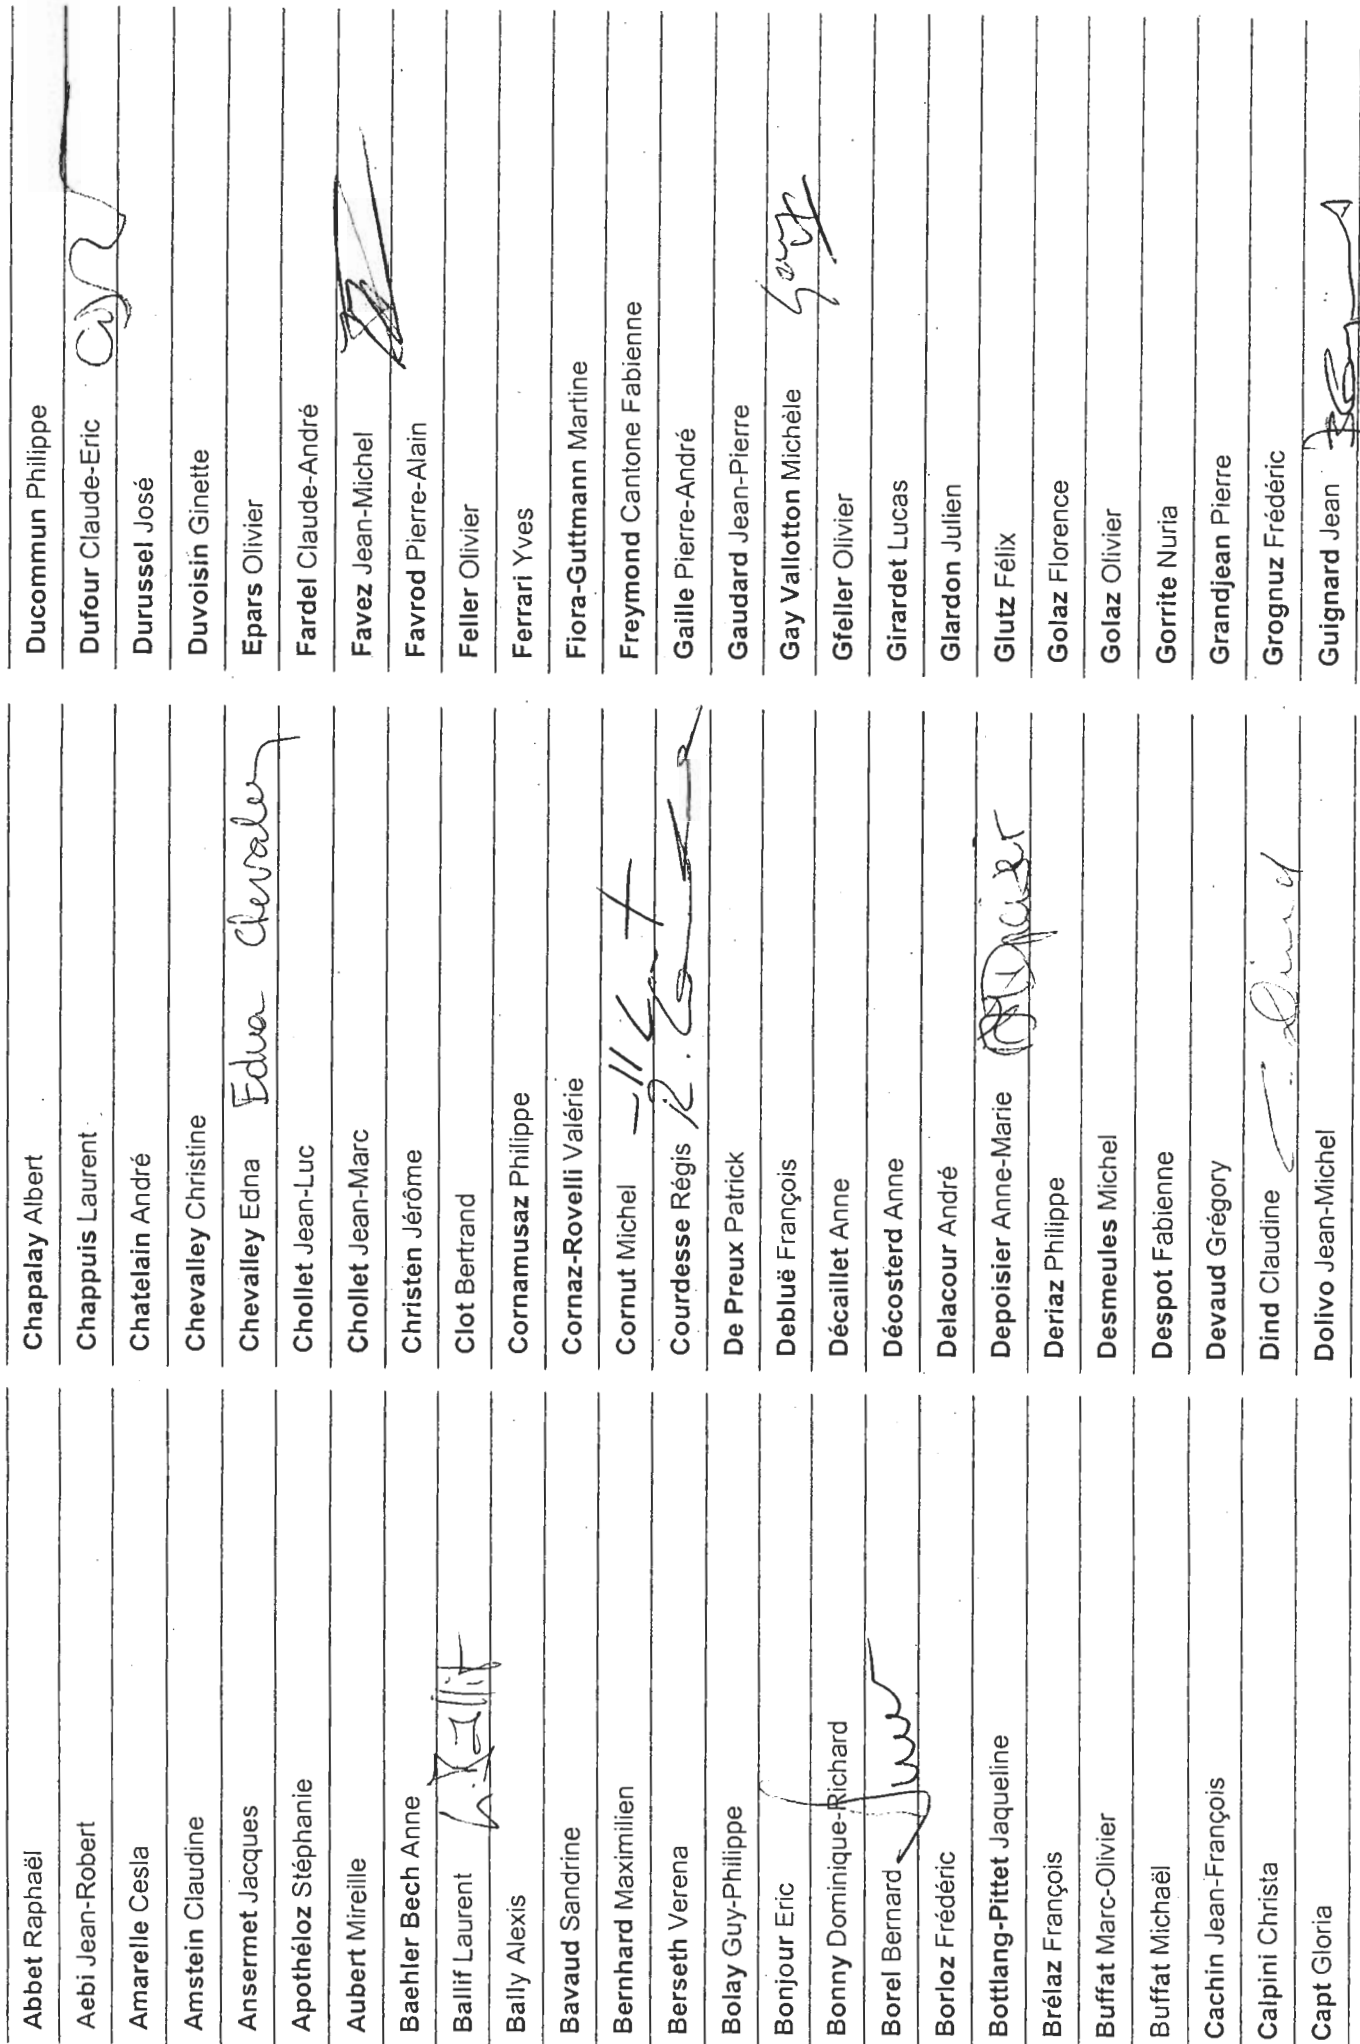 Abbet Raphaël
Aebi Jean-Robert
Amarelle Cesla
Amstein Claudine
Ansermet Jacques
Apothéloz Stéphanie
Aubert Mireille
Baehler Bech Anne
Ballif Laurent L. Ballif
Bally Alexis
Bavaud Sandrine
Bernhard Maximilien
Berseth Verena
Bolay Guy-Philippe
Bonjour Eric
Bonny Dominique-Richard
Borel Bernard
Borloz Frédéric
Bottlang-Pittet Jaqueline
Brélaz François
Buffat Marc-Olivier
Buffat Michaël
Cachin Jean-François
Calpini Christa
Capt Gloria
Chapalay Albert
Chappuis Laurent
Chatelain André
Chevalley Christine
Chevalley Edna Edna Chevalley
Chollet Jean-Luc
Chollet Jean-Marc
Christen Jérôme
Clot Bertrand
Cornamusaz Philippe
Cornaz-Rovelli Valérie
Cornut Michel
Courdesse Régis
De Preux Patrick
Debluë François
Décaillet Anne
Décosterd Anne
Delacour André
Depoisier Anne-Marie
Deriaz Philippe
Desmeules Michel
Despot Fabienne
Devaud Grégory
Dind Claudine Dind
Dolivo Jean-Michel
Ducommun Philippe
Dufour Claude-Eric
Durussel José
Duvoisin Ginette
Epars Olivier
Fardel Claude-André
Favez Jean-Michel
Favrod Pierre-Alain
Feller Olivier
Ferrari Yves
Fiora-Guttmann Martine
Freymond Cantone Fabienne
Gaille Pierre-André
Gaudard Jean-Pierre
Gay Vallotton Michèle
Gfeller Olivier
Girardet Lucas
Glardon Julien
Glutz Félix
Golaz Florence
Golaz Olivier
Gorrite Nuria
Grandjean Pierre
Grognuz Frédéric
Guignard Jean